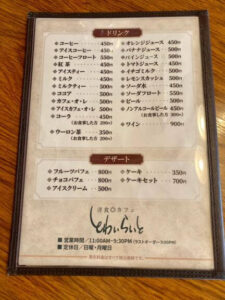 ドリンク
コーヒー 450円
アイスコーヒー 450円
コーヒーフロート 550円
紅茶 450円
アイスティー 450円
ミルク 450円
ミルクティー 500円
ココア 500円
カフェ・オ・レ 500円
アイスカフェ・オ・レ 500円
コーラ 450円
(お食事した方 200円)
ウーロン茶 350円
(お食事した方 200円)
オレンジジュース 450円
バナナジュース 500円
パインジュース 500円
トマトジュース 450円
イチゴミルク 500円
レモンスカッシュ 500円
ソーダ水 450円
ソーダフロート 550円
ビール 500円
ノンアルコールビール 450円
ワイン 900円
デザート
フルーツパフェ 800円
チョコパフェ 800円
アイスクリーム 500円
ケーキ 350円
ケーキセット 700円
洋食◎カフェ
とわいらいと
■ 営業時間/11:00AM-9:30PM(ラストオーダー9:00PM)
■ 定休日/日曜・月曜日